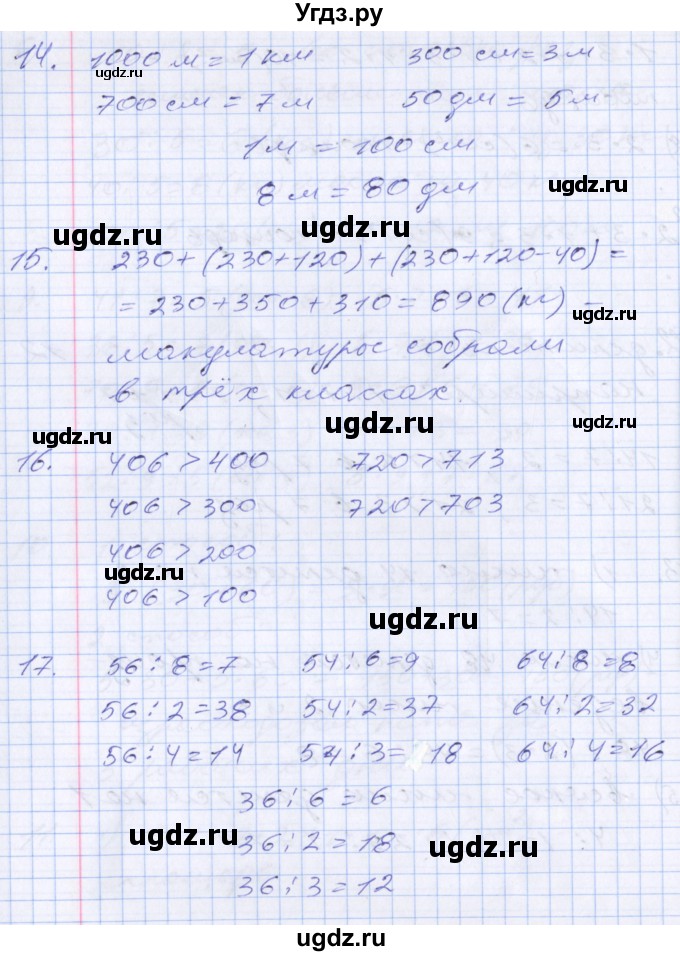 Угдз.ру
14. 1000 м = 1 км 300 см = 3 м
ugdz.ru
700 см = 7 м 50 дм = 5 м
1 м = 100 см
8 м = 80 дм ugdz.ru
ugdz.ru ugdz.ru
15. 230+(230+120)+(230+120-40) =
= 230+350+310 = 890 (кг) –
ugdz.ru
макулатуры собрали
в трёх классах.
ugdz.ru ugdz.ru ugdz.ru
16. 406 > 400 720 > 713
406 > 300 720 > 703
406 > 200
ugdz.ru
406 > 100
ugdz.ru
17. 56:8=7 54:6=9 64:8=8
56:2=38 54:2=37 64:2=32
56:4=14 54:3=18 64:4=16
36:6=6
ugdz.ru 36:2=18 ugdz.ru
36:3=12
ugdz.ru